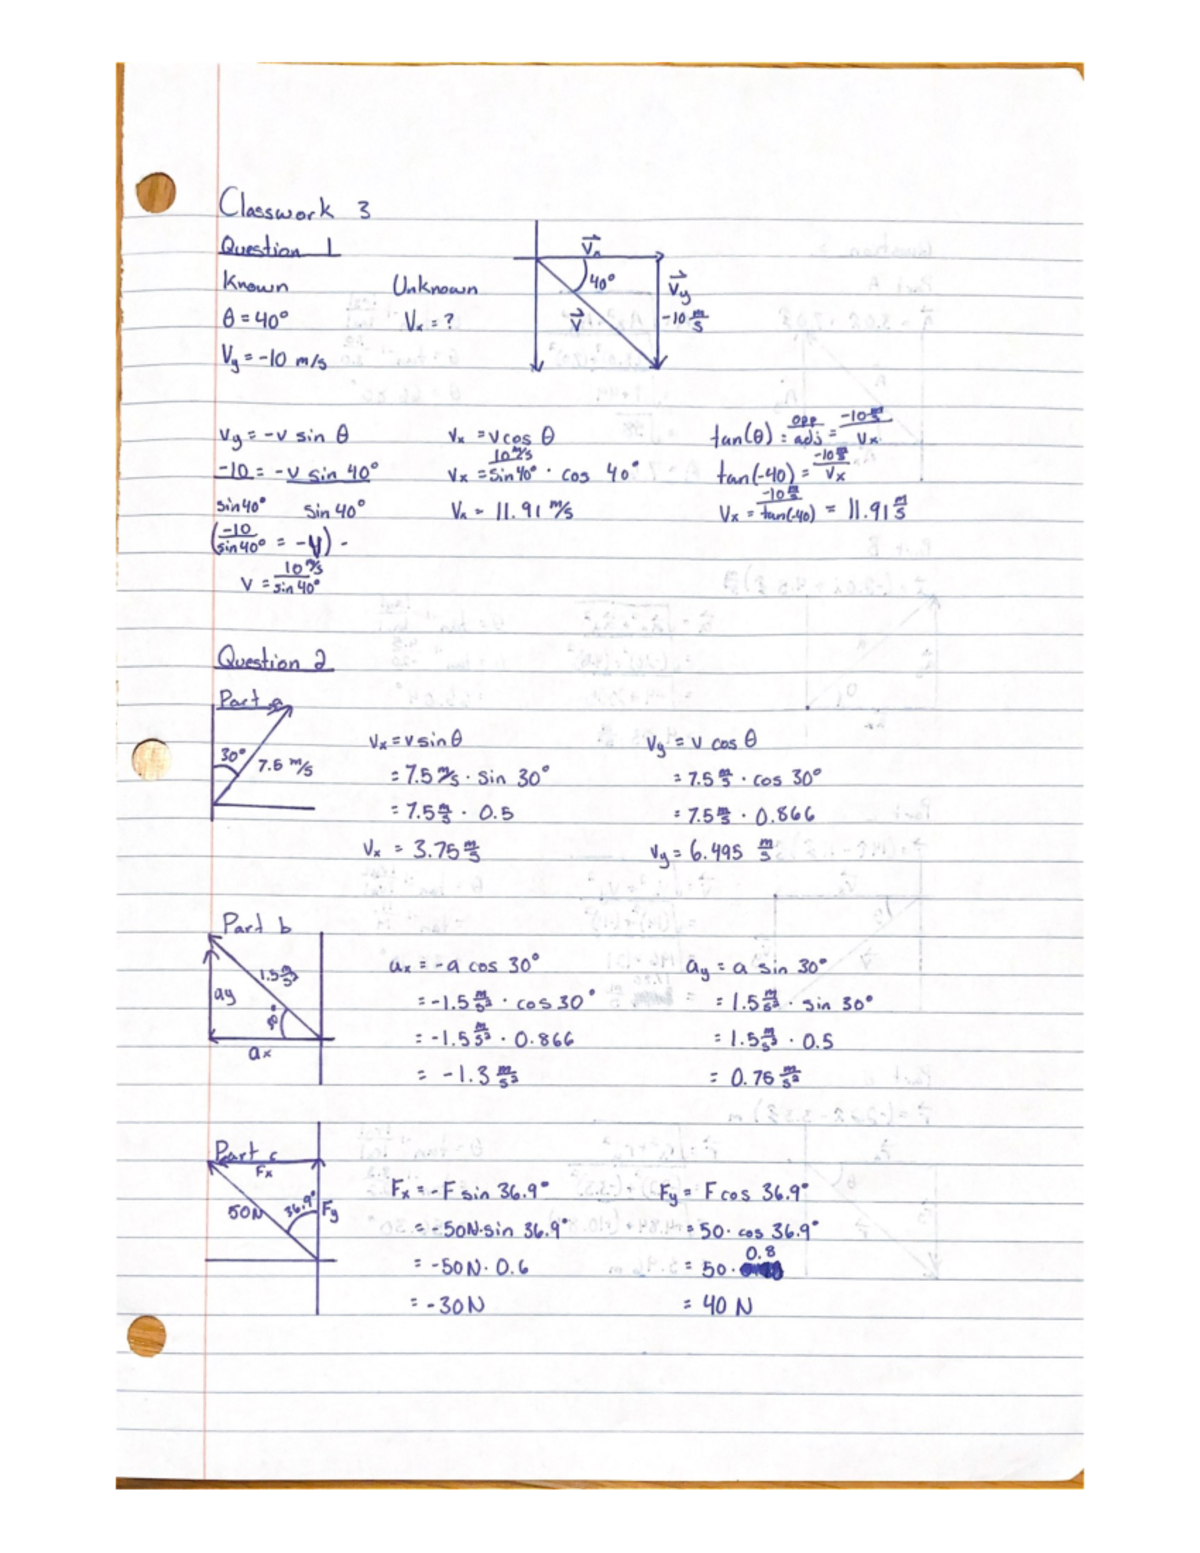 Classwork 3
Question 1
Known Unknown
θ = 40° Vx = ?
Vy = -10 m/s
Vx
40°
Vy
V
-10 m/s
Vy = -v sin θ
-10 = -v sin 40°
sin40° sin 40°
(-10/sin40° = -v) -
v = 10 m/s / sin 40°
Vx = v cos θ
Vx = 10 m/s / sin 40° · cos 40°
Vx = 11.91 m/s
tan(θ) = opp/adj = -10 m/s / Vx
tan(-40) = -10 m/s / Vx
Vx = -10 m/s / tan(-40) = 11.91 m/s
Question 2
Part a
30°
7.5 m/s
Vx = v sin θ
= 7.5 m/s · sin 30°
= 7.5 m/s · 0.5
Vx = 3.75 m/s
Vy = v cos θ
= 7.5 m/s · cos 30°
= 7.5 m/s · 0.866
Vy = 6.495 m/s
Part b
ay
ax
ax = -a cos 30°
= -1.5 m/s² · cos 30°
= -1.5 m/s² · 0.866
= -1.3 m/s²
ay = a sin 30°
= 1.5 m/s² · sin 30°
= 1.5 m/s² · 0.5
= 0.75 m/s²
Part c
Fx
50N
36.9°
Fy
Fx = -F sin 36.9°
= -50N·sin 36.9°
= -50N · 0.6
= -30N
Fy = F cos 36.9°
= 50 · cos 36.9°
= 50 · 0.8
= 40 N